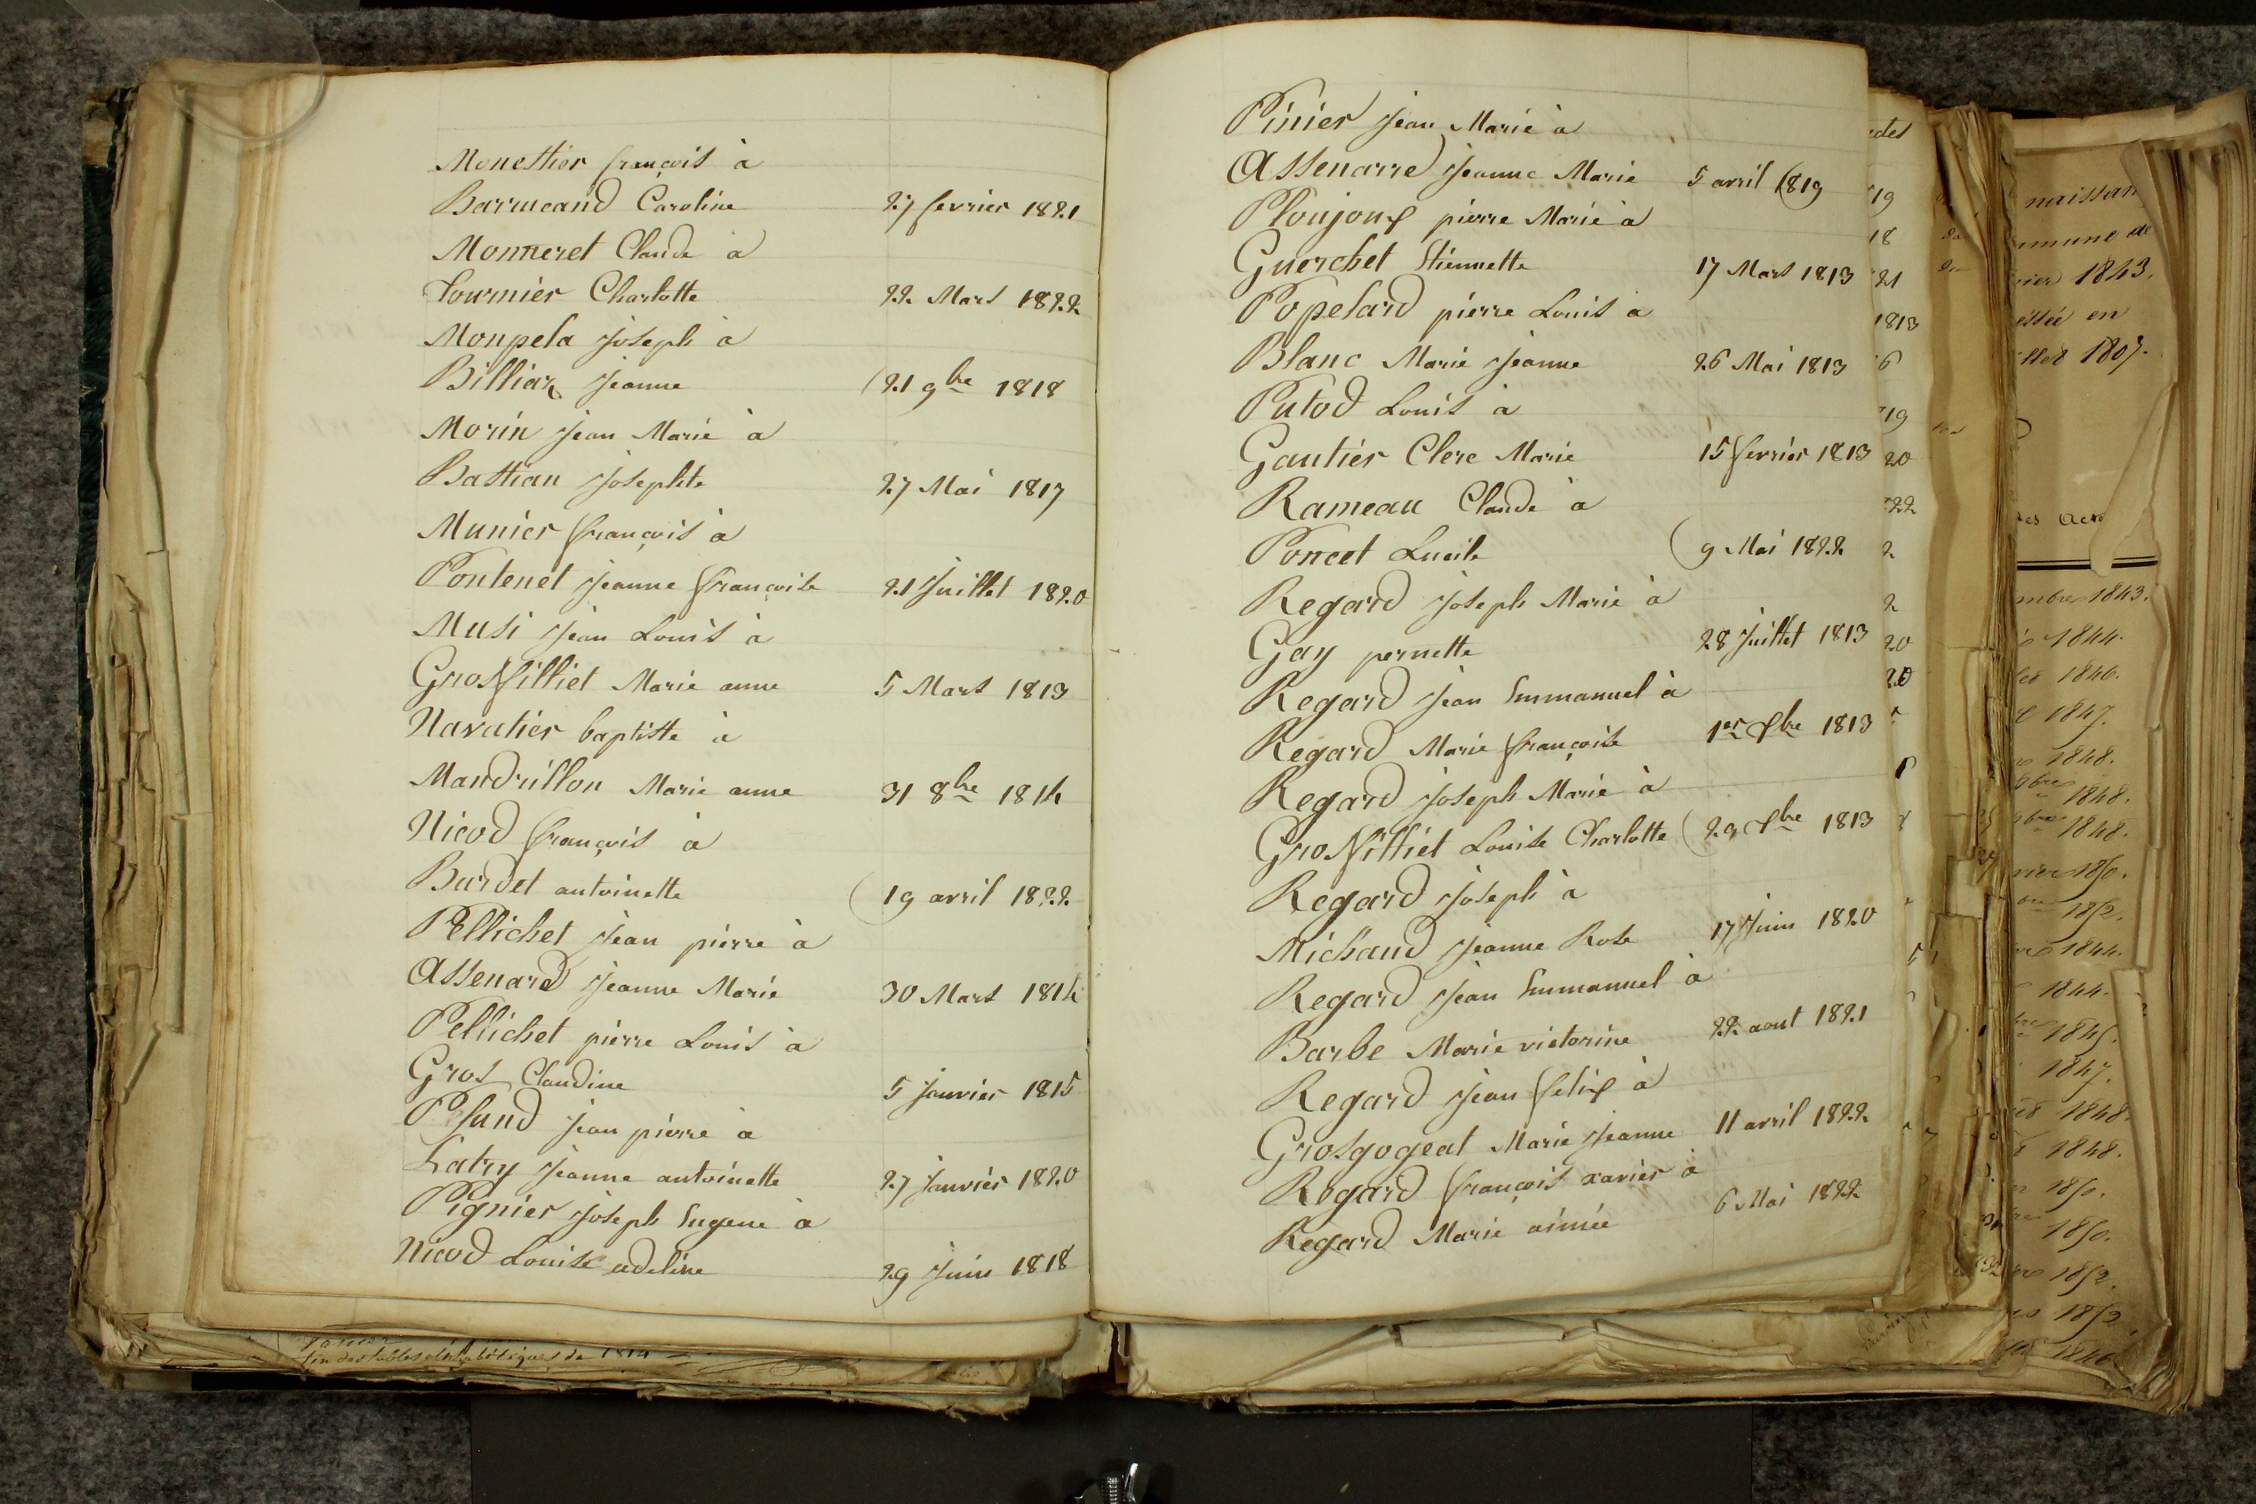 Monettier françois à
Barmeand Caroline 27 fevrier 1821
Monneret Claude à
Tournier Charlotte 22 Mars 1822
Monpela joseph à
Billiaz jeanne 21 9bre 1818
Morin jean Marie à
Battian josephte 27 Mai 1817
Munier françois à
Pontenet jeanne françoise 21 juillet 1820
Musi jean Louis à
Grosfilliet Marie anne 5 Mars 1813
Navatier baptiste à
Mandrillon Marie anne 31 8bre 1814
Nicod françois à
Bardet antoinette 19 avril 1822
Pellichet jean pierre à
Assenard jeanne Marie 30 Mars 1814
Pellichet pierre Louis à
Gros Claudine 5 janvier 1815
Pesund jean pierre à
Latry jeanne antoinette 27 janvier 1820
Pignier joseph Eugene à
Nicod Louise adeline 29 juin 1818
fin des tables alphabétiques de 1814
Pinier jean Marie à
Assenarre jeanne Marie 5 avril 1819
Ploujoux pierre Marie à
Guerchet Etiennette 17 Mars 1813
Popelard pierre Louis à
Blanc Marie jeanne 26 Mai 1813
Putod Louis à
Gautier Clerc Marie 15 fevrier 1813
Rameau Claude à
Poncet Lucile 9 Mai 1822
Regard joseph Marie à
Gay pernette 28 juillet 1813
Regard jean Emmanuel à
Regard Marie françoise 1er Xbre 1813
Regard joseph Marie à
Grosfilliet Louise Charlotte 29 Xbre 1813
Regard joseph à
Michaud jeanne Rose 17 juin 1820
Regard jean Emmanuel à
Barbe Marie victorine 22 aout 1821
Regard jean felix à
Grosgogeat Marie jeanne 11 avril 1822
Regard françois xavier à
Regard Marie aimée 6 Mai 1822
19
18
21
1813
6
19
20
22
2
2
20
20
1843.
en
1807.
1843.
1844.
1846.
1847.
1848.
1848.
1848.
1850.
1852.
1844.
1844.
1845.
1847.
1848.
1848.
1850.
1850.
1852.
1852
1846